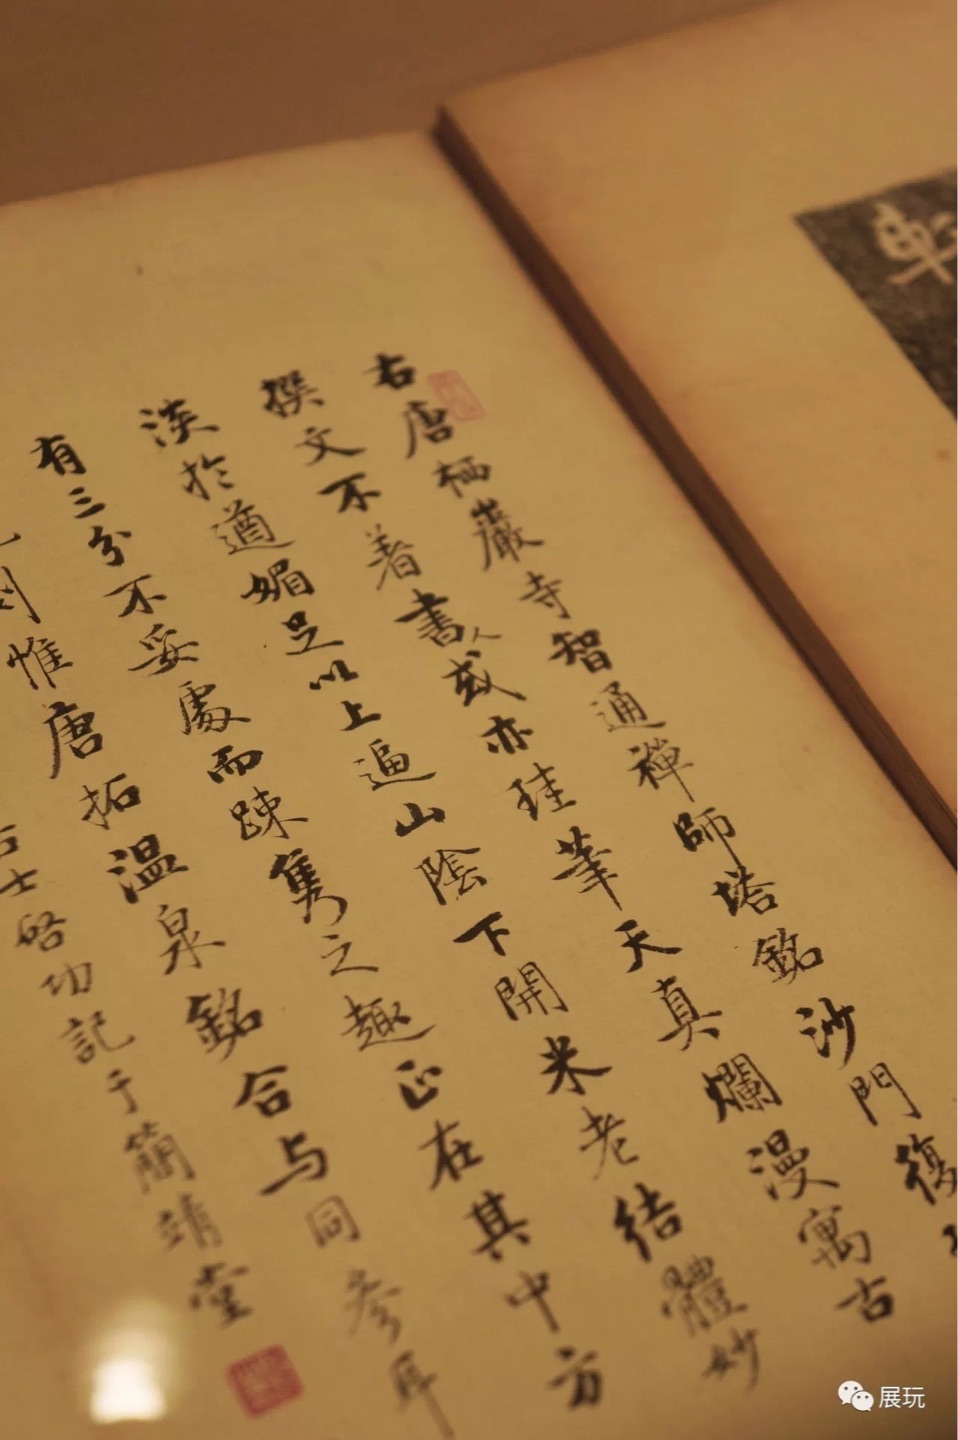 右唐栖巖寺智通禪師塔銘沙門復
撰文不著書人或亦珪筆天真爛漫寓古
淡於遒媚足以上逼山陰下開米老結體妙
有三分不妥處而疎雋之趣正在其中方
刻惟唐拓温泉銘合与同參耳
士啓功記于簡靖堂
展玩